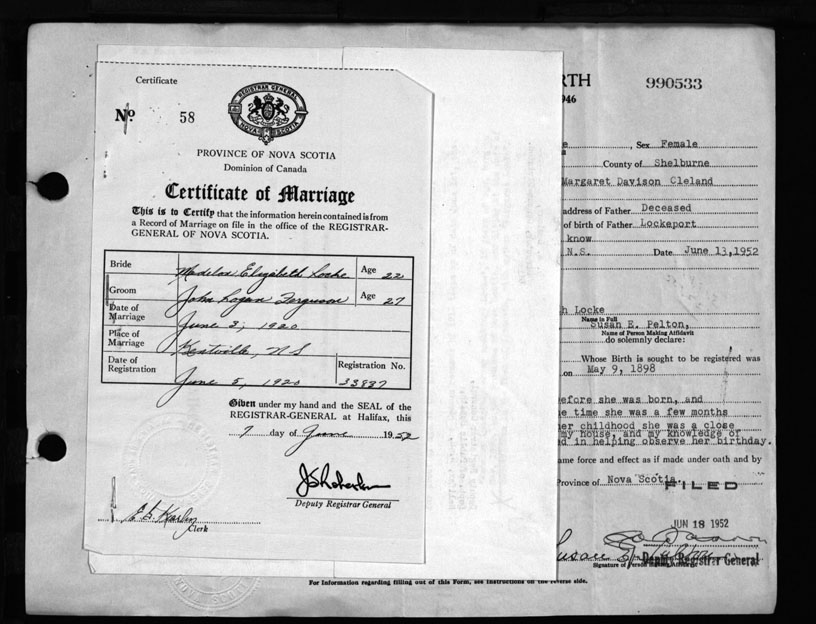 Certificate
No 58
REGISTRAR GENERAL
NOVA SCOTIA
PROVINCE OF NOVA SCOTIA
Dominion of Canada
Certificate of Marriage
This is to Certify that the information herein contained is from
a Record of Marriage on file in the office of the REGISTRAR-
GENERAL OF NOVA SCOTIA.
Bride Madelon Elizabeth Locke Age 22
Groom John Logan Ferguson Age 27
Date of Marriage June 3, 1920
Place of Marriage Kentville, N S
Date of Registration June 5, 1920 Registration No. 33837
Given under my hand and the SEAL of the
REGISTRAR-GENERAL at Halifax, this
7 day of June 1952
Deputy Registrar General
Clerk
RTH 990533
946
e, Sex Female
County of Shelburne
Margaret Davison Cleland
address of Father Deceased
of birth of Father Lockeport
know
N.S. Date June 13,1952
h Locke
Name in Full
Susan E. Pelton,
Name of Person Making Affidavit
do solemnly declare:
Whose Birth is sought to be registered was
on May 9, 1898
efore she was born, and
e time she was a few months
her childhood she was a close
my house, and my knowledge of
d in helping observe her birthday.
ame force and effect as if made under oath and by
Province of Nova Scotia.
FILED
JUN 18 1952
Susan E. Pelton
Deputy Registrar General
Signature of Person Making Affidavit
For Information regarding filling out of this Form, see instructions on the reverse side.
NOVA SCOTIA